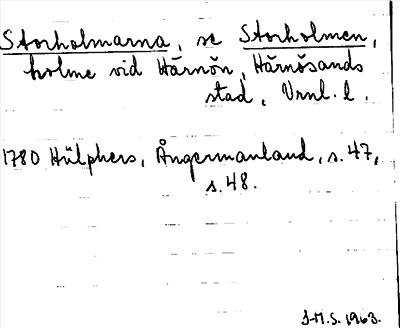 Storholmarna, se Storholmen,
holme vid Härnön, Härnösands
stad, Vrnl. l.
1780 Hülphers, Ångermanland, s. 47,
s. 48.
J-M.S. 1963.